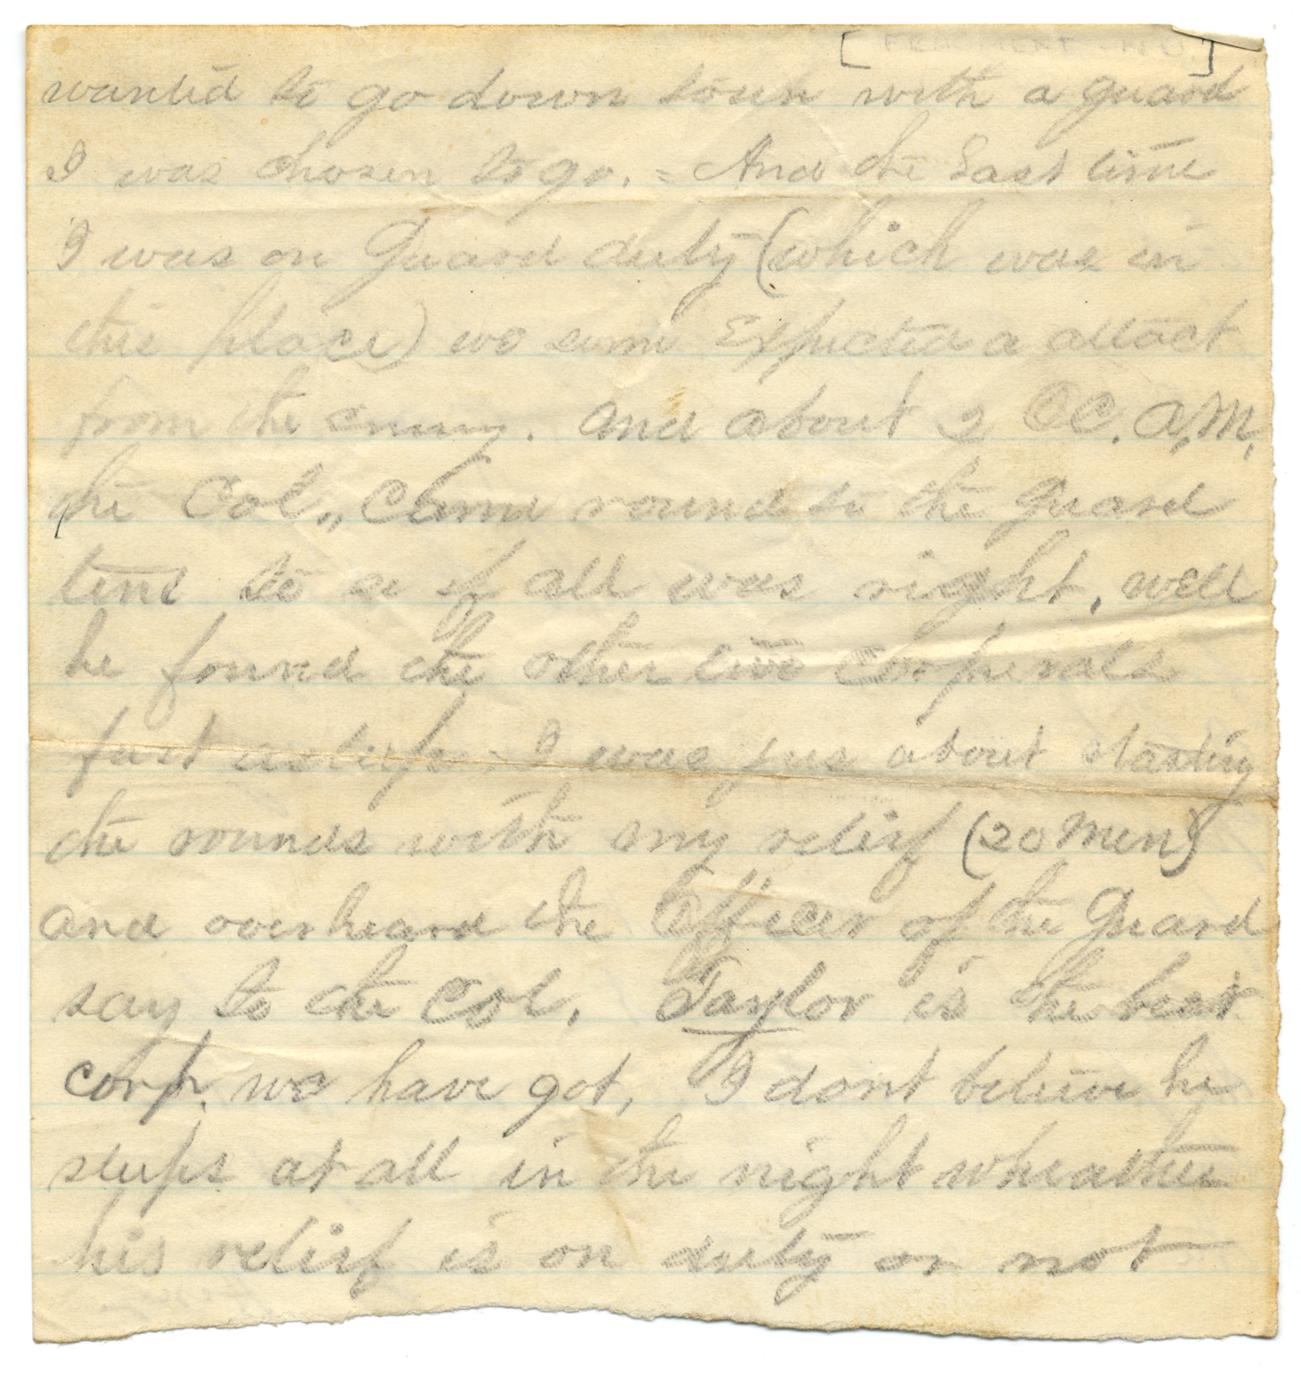 [FRAGMENT - ND]
wanted to go down town with a guard
I was chosen to go. = And the Last time
I was on Guard duty (which was in
this place) we Expected a attact
from the enemy. And about 2 OC. A.M.
the Col,, Came round to the Guard
tent to se if all was right, well
he found the other two Corperals
fast asleep - I was jus about starting
the rounds with my relief (20 Men)
And overheard the Officer of the Guard
say to the Col. Taylor is the best
corp. we have got, I dont believe he
sleeps at all in the night wheather
his relief is on duty or not